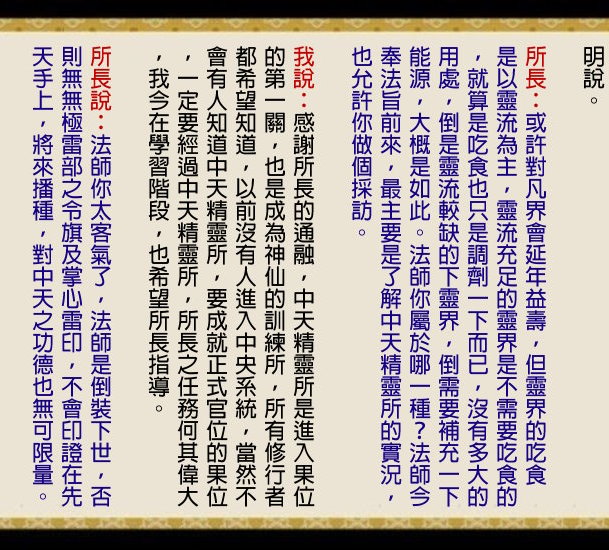 明說。
所長：或許對凡界會延年益壽，但靈界的吃食
是以靈流為主，靈流充足的靈界是不需要吃食的
，就算是吃食也只是調劑一下而已，沒有多大的
用處，倒是靈流較缺的下靈界，倒需要補充一下
能源，大概是如此。法師你屬於哪一種？法師今
奉法旨前來，最主要是了解中天精靈所的實況，
也允許你做個採訪。
我說：感謝所長的通融，中天精靈所是進入果位
的第一關，也是成為神仙的訓練所，所有修行者
都希望知道，以前沒有人進入中央系統，當然不
會有人知道中天精靈所，要成就正式官位的果位
，一定要經過中天精靈所，所長之任務何其偉大
，我今在學習階段，也希望所長指導。
所長說：法師你太客氣了，法師是倒裝下世，否
則無無極雷部之令旗及掌心雷印，不會印證在先
天手上，將來播種，對中天之功德也無可限量。